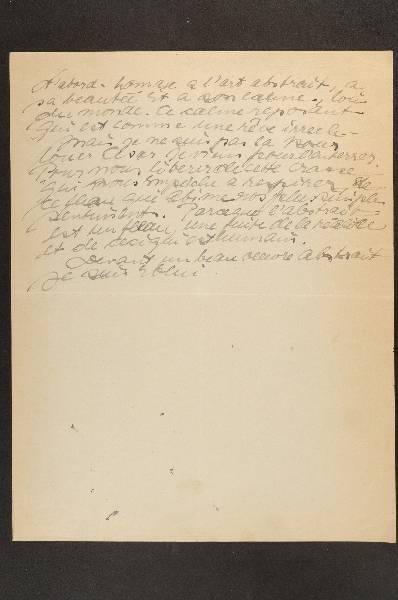 D'abord - homage a l'art abstrait, a
sa beauteé et a son calme, loin
du monde. Ce calme reposent
qui est comme une rêve irreela-
Mais je ne suis pas la pour
louer César. Je viens pour l'anterrer.
Pour nous libérer de cette crasse
qui nous empêche a respirer, de
ce fleau qui abime nos plus simples
sentiments. Parceque l'abstrait
est un fleau, une fuite de la réalité
et de ceci qui est humain.
Devant un beau oeuvre abstrait
je suis ebloui